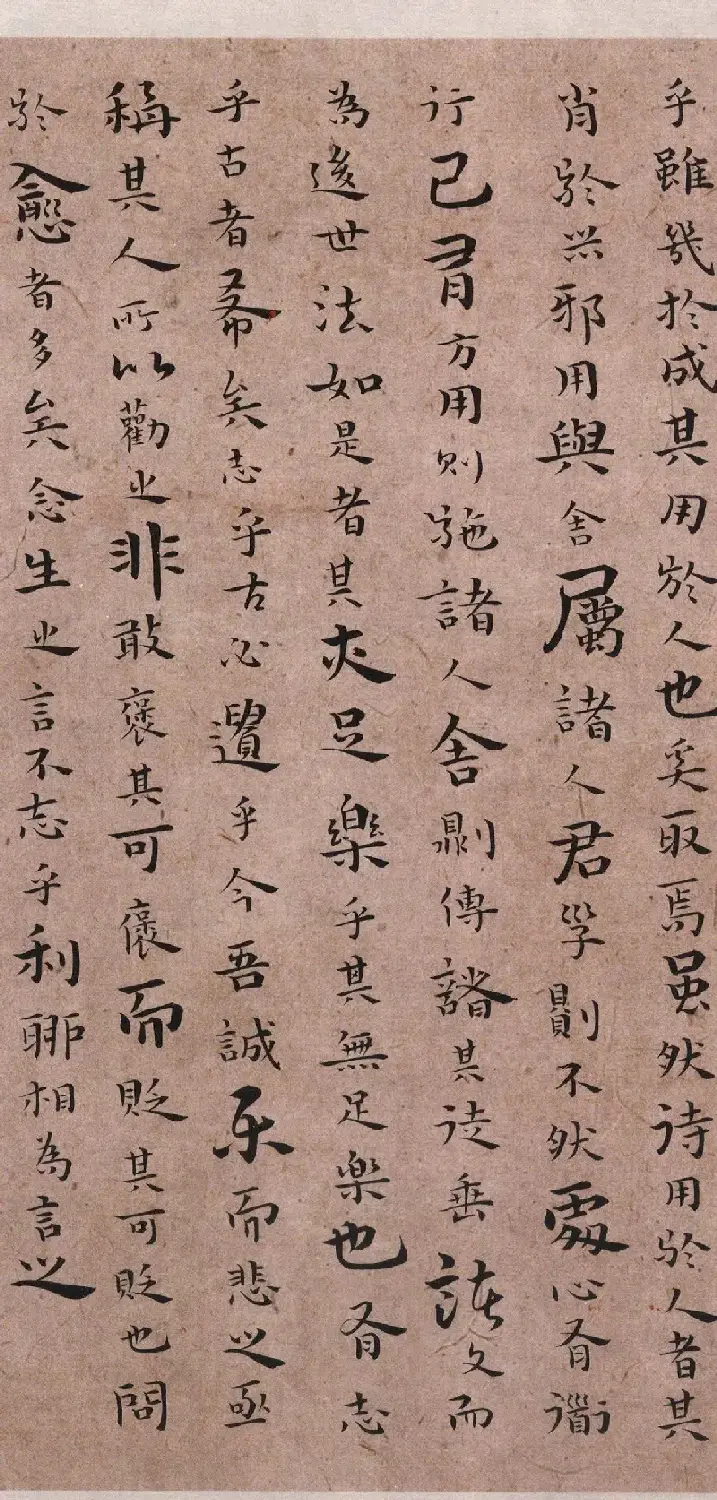 乎雖幾於成其用於人也奚取焉虽然待用於人者其
肖於器邪用與舍屬諸人君子則不然處心有道
行己有方用則施諸人舍則傳諸其徒垂諸文而
為後世法如是者其亦足樂乎其無足樂也有志
乎古者希矣志乎古必遺乎今吾誠樂而悲之亟
稱其人所以勸之非敢褒其可褒而貶其可貶也問
於愈者多矣念生之言不志乎利聊相為言之